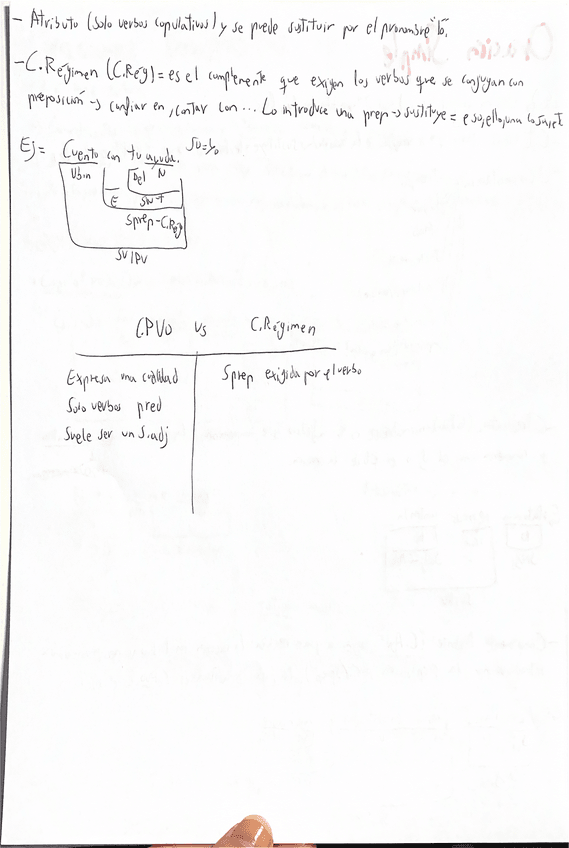 - Atributo (solo verbos copulativos) y se puede sustituir por el pronombre "lo".
- C.Régimen (C.Reg) = es el complemento que exigen los verbos que se conjugan con
preposición → confiar en, contar con ... Lo introduce una prep → sustituye = eso, ello, una cosa, el
Ej = Cuento con tu ayuda. SU = yo
Det N
E SN-T
Sprep-C.Reg
SV/PV
C.PVO vs C.Régimen
Expresa una cualidad Sprep exigida por el verbo
Solo verbos pred
Suele ser un S.adj